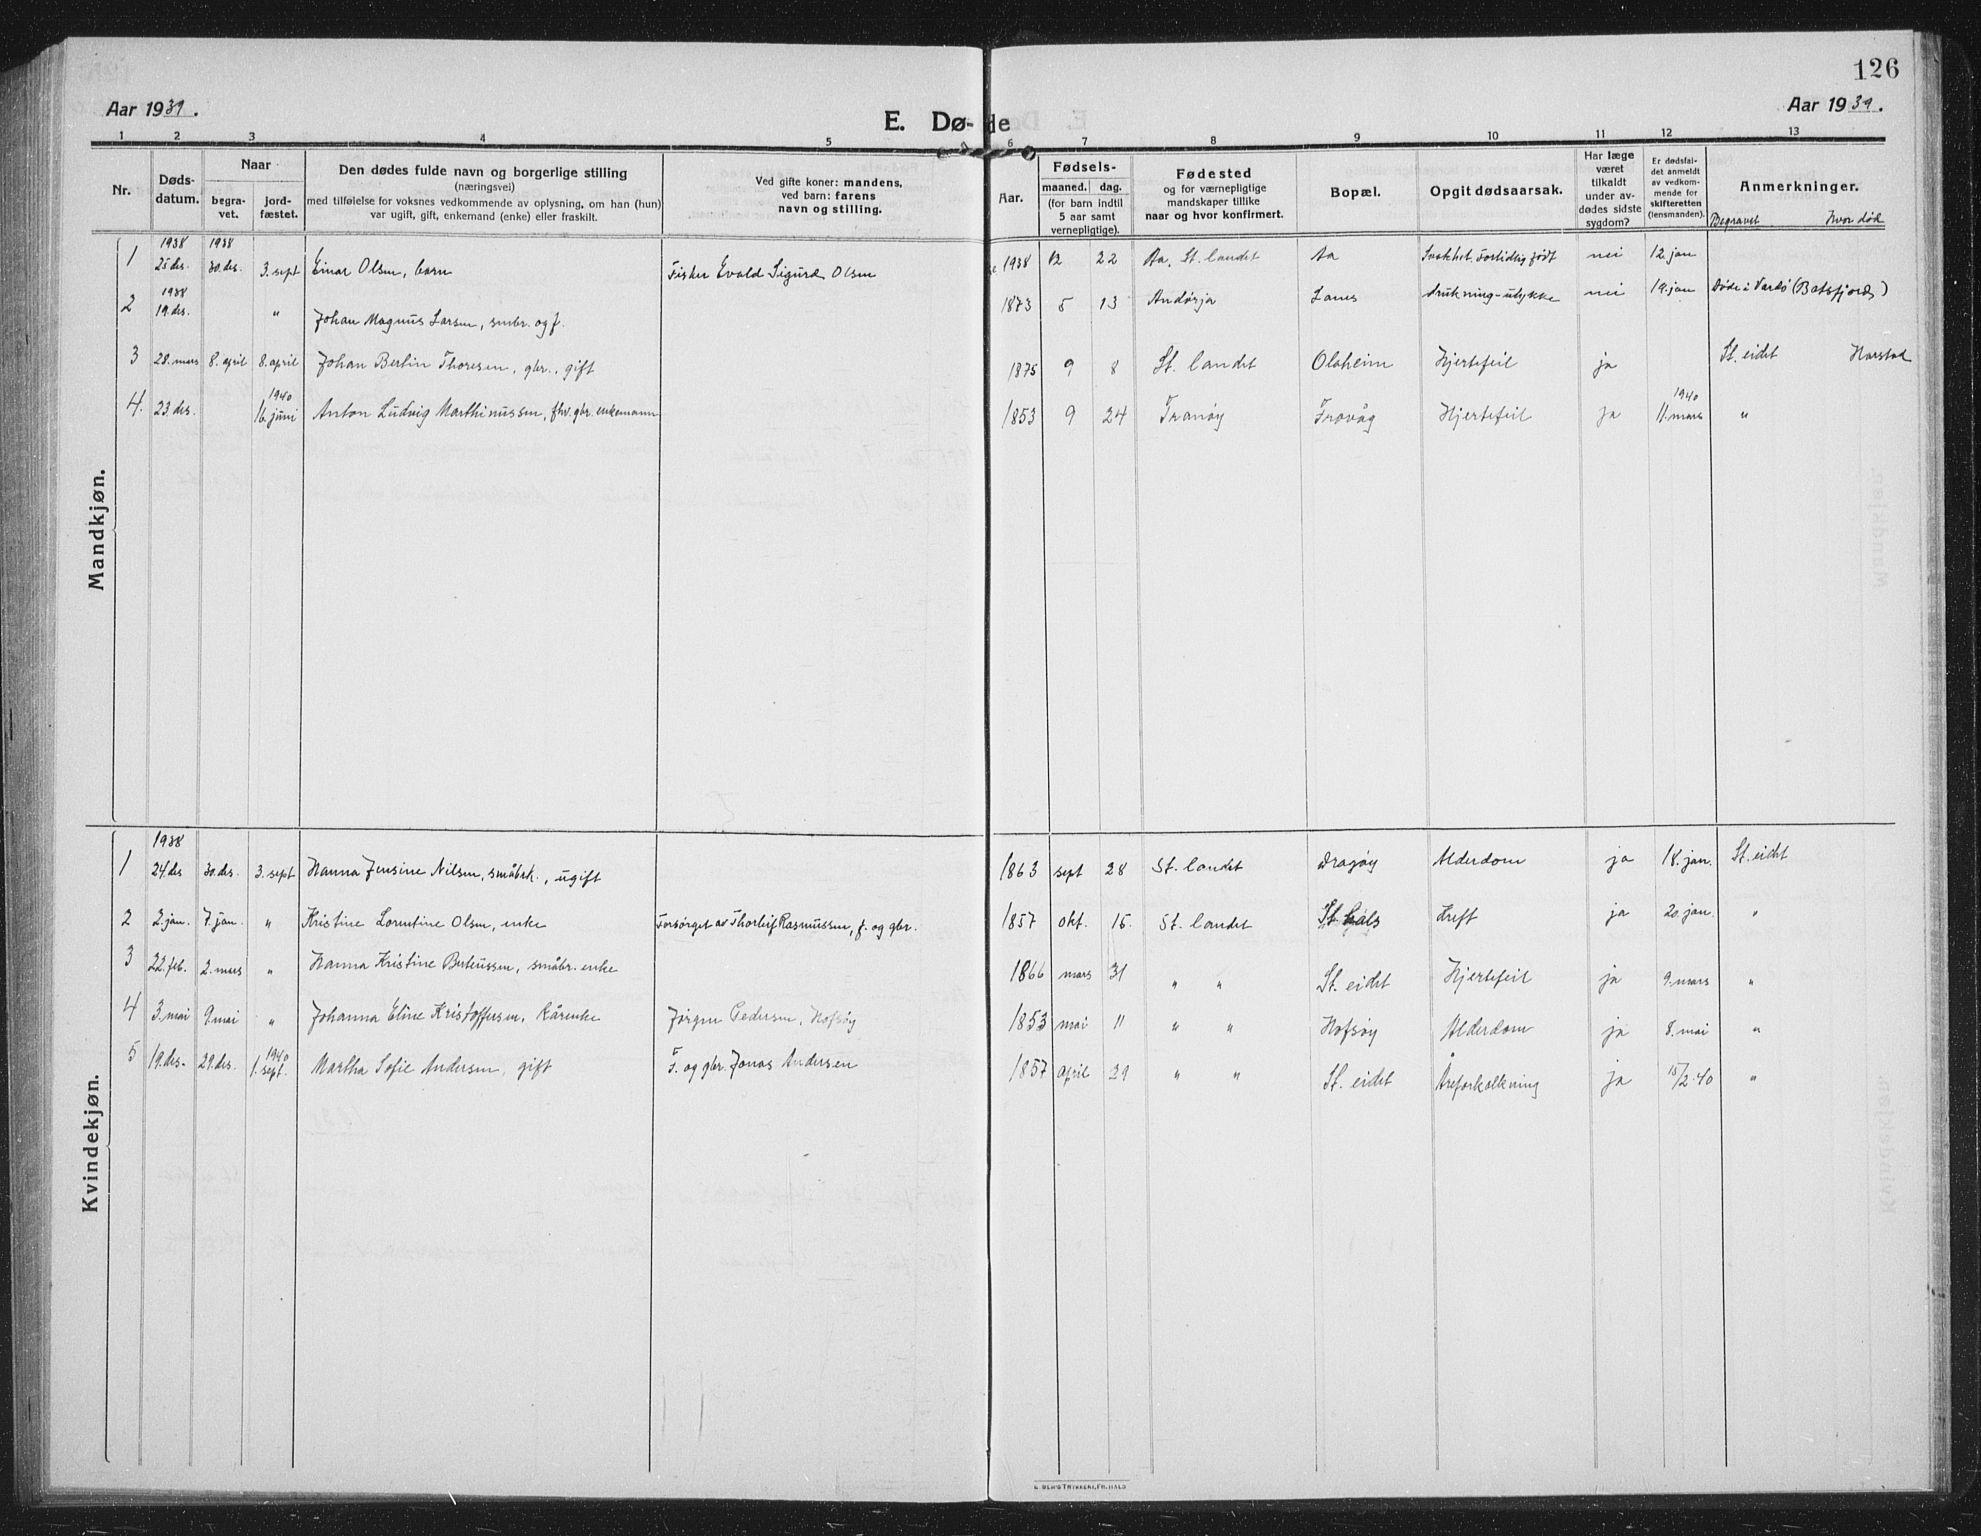 126
Aar 1939.
E. Dø-de
Aar 1939.
1 2 3 4 5 6 7 8 9 10 11 12 13
Nr.
Døds-
datum.
Naar
begra-
vet.
jord-
fæstet.
Den dødes fulde navn og borgerlige stilling
(næringsvei)
med tilføielse for voksnes vedkommende av oplysning, om han (hun)
var ugift, gift, enkemand (enke) eller fraskilt.
Ved gifte koner: mandens,
ved barn: farens
navn og stilling.
Aar.
Fødsels-
maaned. dag.
(for barn indtil
5 aar samt
vernepligtige).
Fødested
og for værnepligtige
mandskaper tillike
naar og hvor konfirmert.
Bopæl.
Opgit dødsaarsak.
Har læge
været
tilkaldt
under av-
dødes sidste
sygdom?
Er dødsfal-
det anmeldt
av vedkom-
mende for
skifteretten
(lensmanden).
Anmerkninger.
Begravet Hvor død
Mandkjøn.
1938 1938
1 25 des. 30. des. 3. sept Einar Olsen, barn Fisker Evald Sigurd Olsen 1938 12 22 Aa, St. landet Aa Svakhet. Fortidlig født nei 12. jan
1938
2 19. des. " Johan Magnus Larsen, smbr. og f. 1873 5 13 Andørja Lanes drukning-ulykke nei 19. jan Døde i Vardø (Båtsfjord)
3 28. mars 8. april 8. april Johan Berlin Thoresen, gbr., gift 1875 9 8 St. landet Olaheim Hjertefeil ja St. eidet Harstad
1940 1940
4. 23 des. 16. juni Anton Ludvig Marthinussen, fhv. gbr. enkemann 1853 9 24 Tranøy Trovåg Hjertefeil ja 11. mars "
Kvindekjøn.
1938
1 24. des 30. des. 3. sept Hanna Jensine Nilsen, småbrk., ugift 1863 sept 28 St. landet Dragøy Alderdom ja 18. jan. St. eidet
2 2. jan. 7. jan. " Kristine Lorentine Olsen, enke Forsørget av Thorleif Rasmussen, f. og gbr. 1857 okt. 15. St. landet St. Hals Kreft ja 20. jan. "
3 22. feb. 2. mars " Hanna Kristine Berteussen, småbr. enke 1866 mars 31 " " St. eidet Hjertefeil ja 9. mars "
4 3. mai 9. mai " Johanna Eline Kristoffersen, Kårenke Jørgen Pedersen, Hofsøy 1853 mai 11 " " Hofsøy Alderdom ja 8. mai "
1940
5 19. des. 29. des. 1. sept. Martha Sofie Andersen, gift F. og gbr. Jonas Andersen 1857 april 29 " " St. eidet Åreforkalkning ja 15/2 40 "